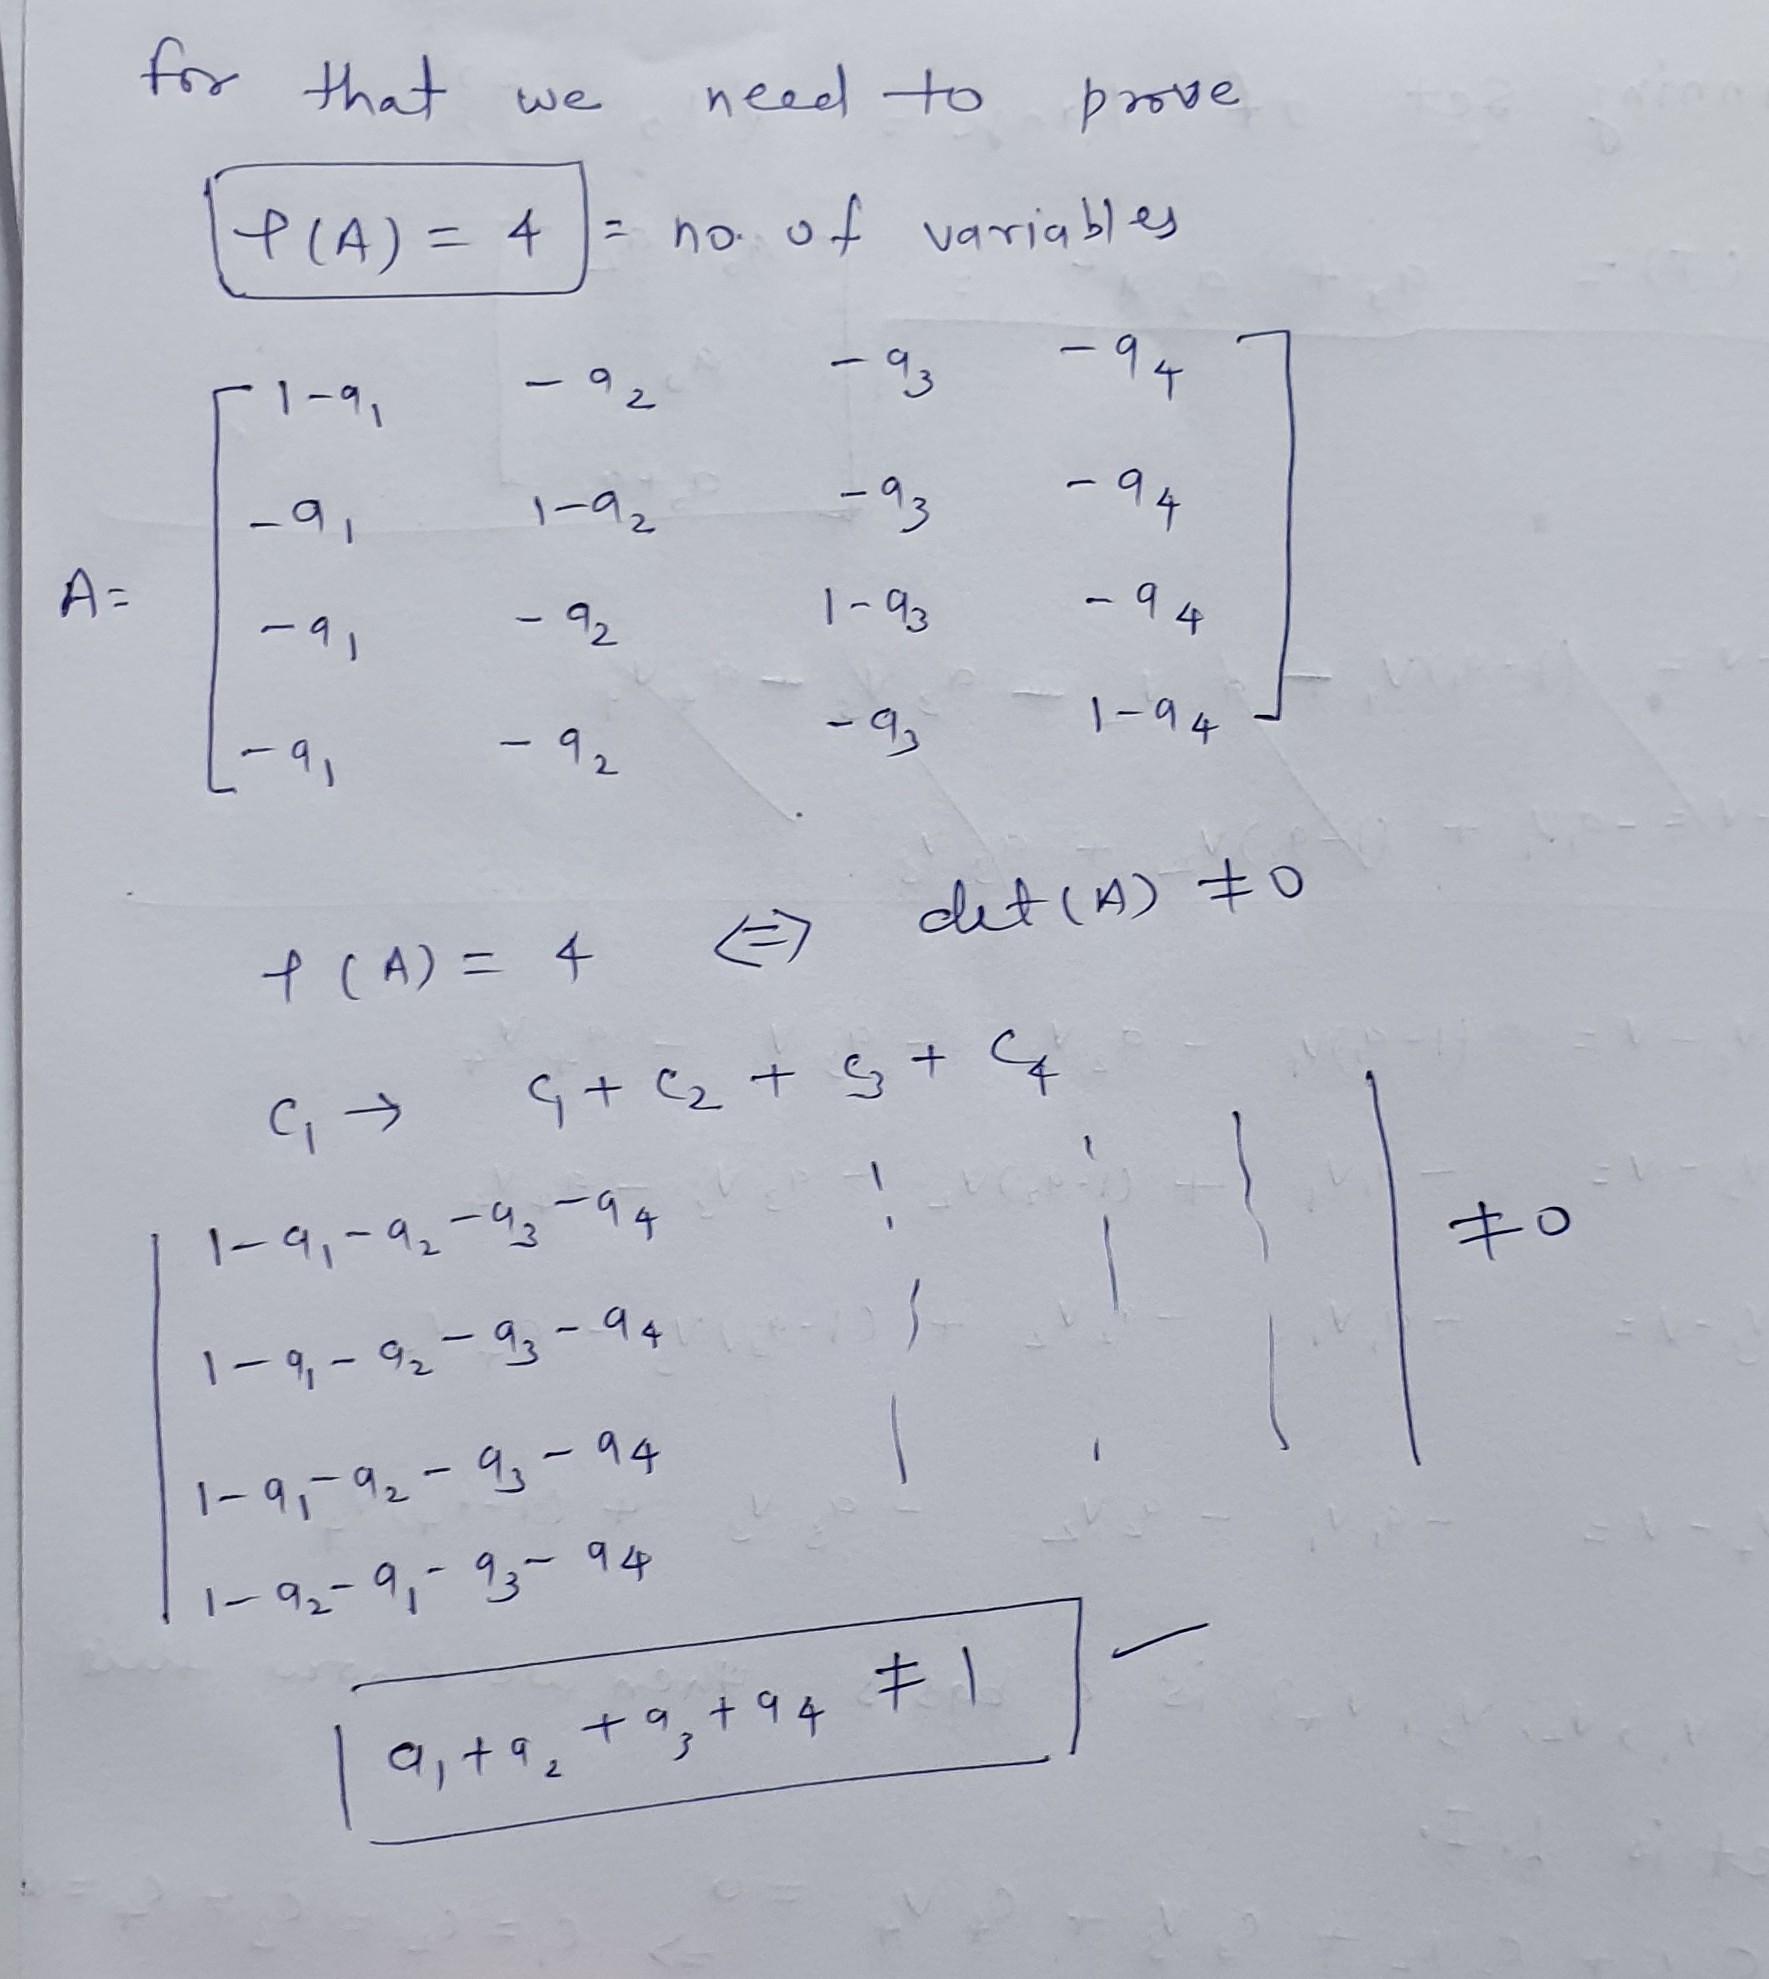 for that we need to prove
ρ(A) = 4 = no. of variables
1-a₁ -a₂ -a₃ -a₄
-a₁ 1-a₂ -a₃ -a₄
A=
-a₁ -a₂ 1-a₃ -a₄
-a₁ -a₂ -a₃ 1-a₄
ρ(A) = 4 <=> det(A) ≠ 0
C₁ → C₁ + C₂ + C₃ + C₄
1-a₁-a₂-a₃-a₄
≠0
1-a₁-a₂-a₃-a₄
1-a₁-a₂-a₃-a₄
1-a₂-a₁-a₃-a₄
a₁+a₂+a₃+a₄ ≠ 1